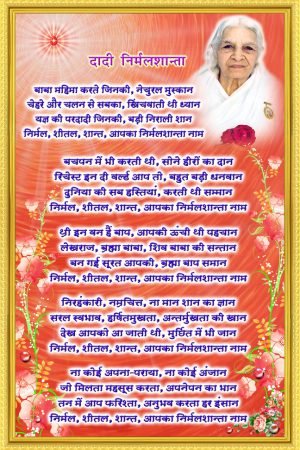 दादी निर्मलशान्ता
बाबा महिमा करते जिनकी, नेचुरल मुस्कान
चेहरे और चलन से सबका, खिंचवाती थी ध्यान
यज्ञ की परदादी जिनकी, बड़ी निराली शान
निर्मल, शीतल, शान्त, आपका निर्मलशान्ता नाम
बचपन में भी करती थी, सोने हीरों का दान
रिचेस्ट इन दी वर्ल्ड आप तो, बहुत बड़ी धनवान
दुनिया की सब हस्तियां, करती थी सम्मान
निर्मल, शीतल, शान्त, आपका निर्मलशान्ता नाम
थ्री इन वन हैं बाप, आपकी ऊंची थी पहचान
लेखराज, ब्रह्मा बाबा, शिव बाबा की सन्तान
बन गई सूरत आपकी, ब्रह्मा बाप समान
निर्मल, शीतल, शान्त, आपका निर्मलशान्ता नाम
निरहंकारी, नम्रचित्त, ना मान शान का ज्ञान
सरल स्वभाव, हर्षितमुखता, अन्तर्मुखता की खान
देख आपको आ जाती थी, मुर्छित में भी जान
निर्मल, शीतल, शान्त, आपका निर्मलशान्ता नाम
ना कोई अपना-पराया, ना कोई अंजान
जो मिलता महसूस करता, अपनेपन का भान
तन में आप फरिश्ता, अनुभव करता हर इंसान
निर्मल, शीतल, शान्त, आपका निर्मलशान्ता नाम